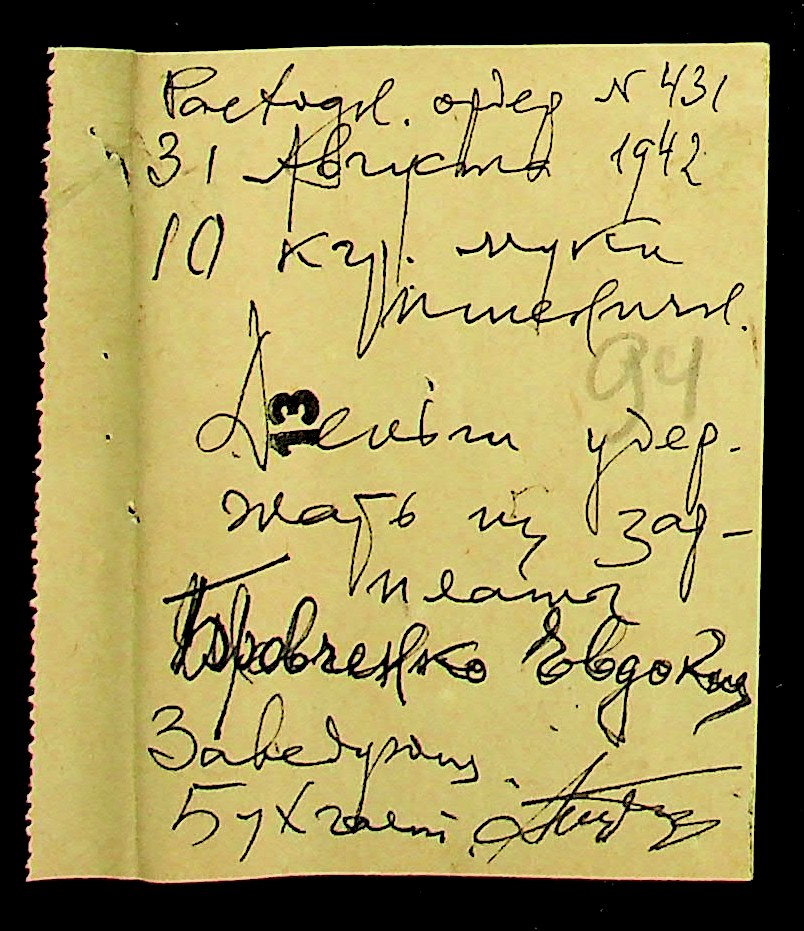 Расходн. ордер № 431
31 Августа 1942
10 кгр. муки
пшеничн.
94
13
Деньги удер-
жать из зар-
платы
Бровченко Евдокии
Заведующ.
Бухгалт.